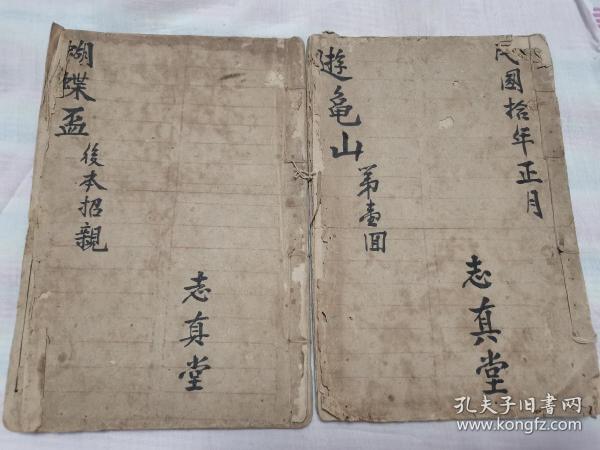 民國拾年正月
遊龜山
第壹回
志真堂
蝴蝶盃
後本招親
志真堂
孔夫子旧書网
www.kongfz.com